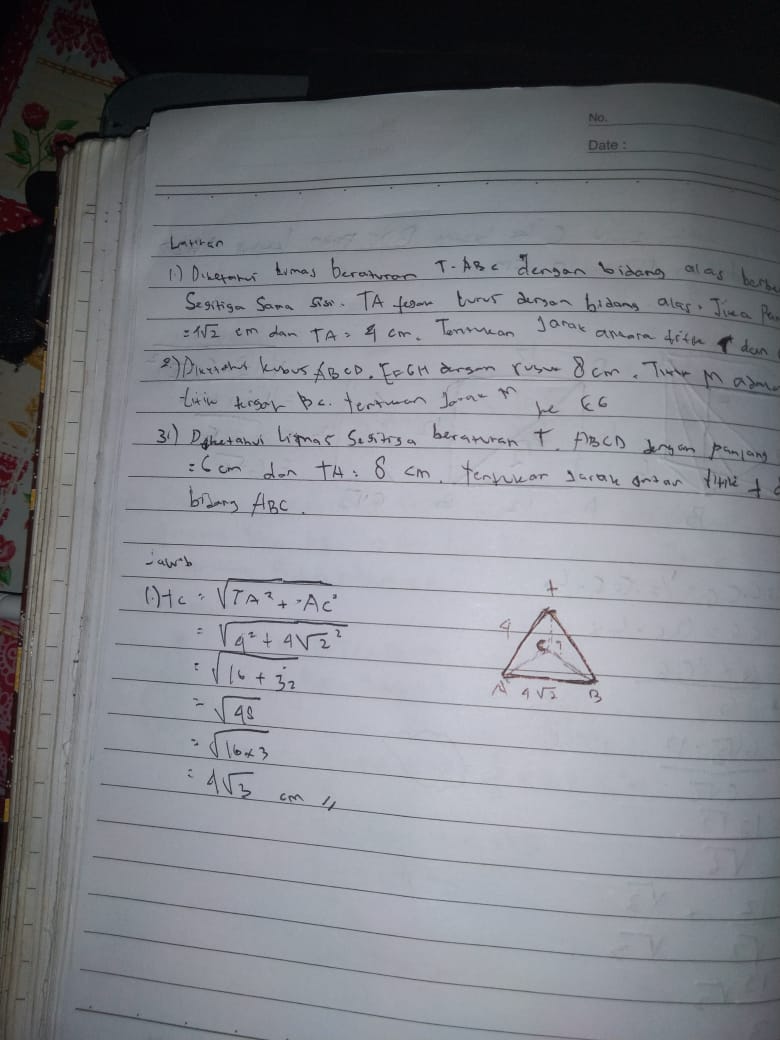 No.
Date :
Latihan
1.) Diketahui Limas beraturan T. ABC dengan bidang alas
Segitiga Sama Sisi. TA tegak lurus dengan bidang alas. Jika
= 4√2 cm dan TA = 4 cm. Tentukan Jarak antara titik T dan
2.) Diketahui kubus ABCD. EFGH dengan rusuk 8 cm. Titik M
titik tengah BC. tentukan Jarak M ke EG
3.) Diketahui Limas Segitiga beraturan T. ABCD dengan panjang
= 6 cm dan TA = 8 cm. tentukan Jarak antar titik t
bidang ABC.
Jawab
1.) tc = √TA² + AC²
= √4² + 4√2²
= √16 + 32
= √48
= √16x3
= 4√3 cm //
t
4
C
A 4√2 B